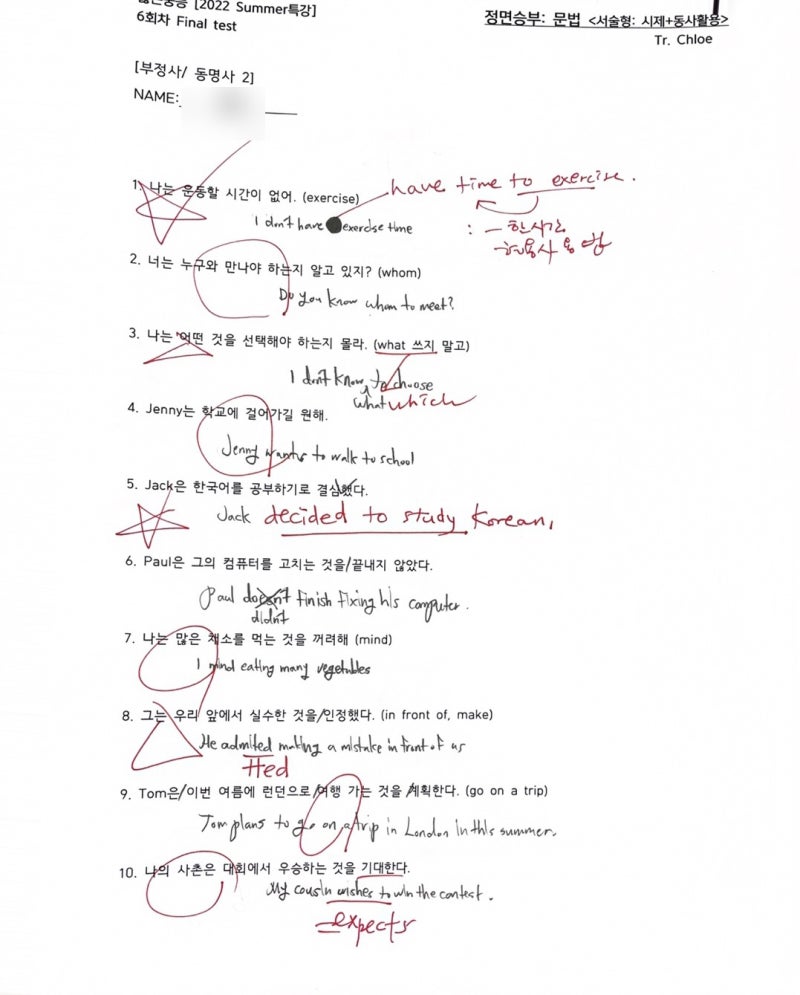 [2022 Summer특강]
6회차 Final test
정면승부: 문법 <서술형: 시제+동사활용>
Tr. Chloe
[부정사/ 동명사 2]
NAME:
1. 나는 운동할 시간이 없어. (exercise)
have time to exercise.
I don't have exercise time
: ~한시간
형용사 용법
2. 너는 누구와 만나야 하는지 알고 있지? (whom)
Do you know whom to meet?
3. 나는 어떤 것을 선택해야 하는지 몰라. (what 쓰지 말고)
I don't know to choose
what which
4. Jenny는 학교에 걸어가길 원해.
Jenny wants to walk to school
5. Jack은 한국어를 공부하기로 결심했다.
Jack decided to study Korean,
6. Paul은 그의 컴퓨터를 고치는 것을/끝내지 않았다.
Paul doesn't finish fixing his computer.
didn't
7. 나는 많은 채소를 먹는 것을 꺼려해 (mind)
I mind eating many vegetables
8. 그는 우리 앞에서 실수한 것을/인정했다. (in front of, make)
He admited making a mistake in front of us
tted
9. Tom은/이번 여름에 런던으로/여행 가는 것을 계획한다. (go on a trip)
Tom plans to go on a trip in London in this summer.
10. 나의 사촌은 대회에서 우승하는 것을 기대한다.
My cousin wishes to win the contest.
expects